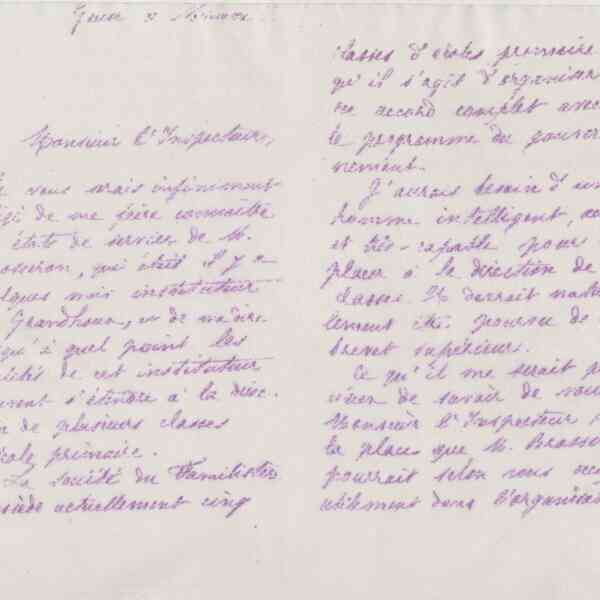 Guise
Monsieur l'Inspecteur,
vous serais infiniment
de me faire connaître
états de services de M.
, qui était il y a
mois instituteur
Grandhoux, et de me dire
qu'à quel point les
de cet instituteur
s'étendre à la direc-
de plusieurs classes
primaire.
La société du Familistère
actuellement cinq
classes d'écoles primaire
qu'il s'agit d'organiser
en accord complet avec
le programme du gouver-
nement.
J'aurais besoin d'un
homme intelligent,
et très-capable pour
place à la direction de
classes. Il devrait natu
lement être pourvu de
brevet supérieur.
Ce qu'il me serait p
de savoir de vous
Monsieur l'Inspecteur
la place que M. Brasse
pourrait selon vous occ
utilement dans l'organisa